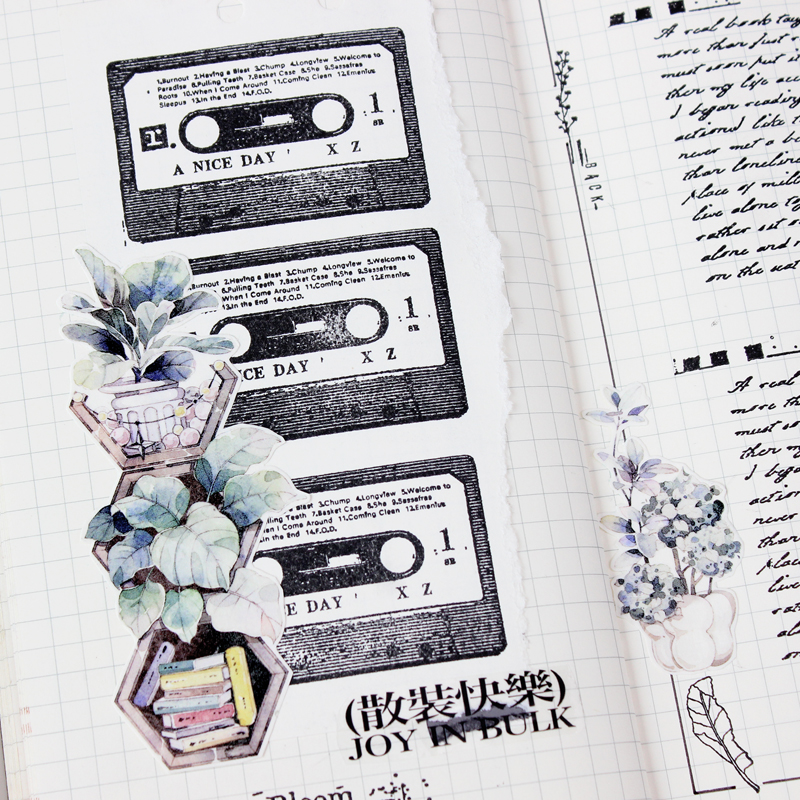 1.Burnout 2.Having a Blast 3.Chump 4.Longview 5.Welcome to
Paradise 6.Pulling Teeth 7.Basket Case 8.She 9.Sassafras
Roots 10.When I Come Around 11.Coming Clean 12.Emenius
Sleepus 13.In the End 14.F.O.D.
r.
1
SB
A NICE DAY ' X Z
Burnout 2.Having a Blast 3.Chump 4.Longview 5.Welcome to
6.Pulling Teeth 7.Basket Case 8.She 9.Sassafras
When I Come Around 11.Coming Clean 12.Emenius
13.In the End 14.F.O.D.
1
SB
ICE DAY ' X Z
Blast 3.Chump 4.Longview 5.Welcome to
Teeth 7.Basket Case 8.She 9.Sassafras
en I Come Around 11.Coming Clean 12.Emenius
in the End 14.F.O.D.
1
SB
E DAY ' X Z
(散裝快樂)
JOY IN BULK
Bloom
BACK
A real book
more than just
must soon put it
then my life
I began reading
action
never met a
than
Place of
live alone
rather
alone and
on the
A real
more
must
then my
I began
action
never
than
Place
live